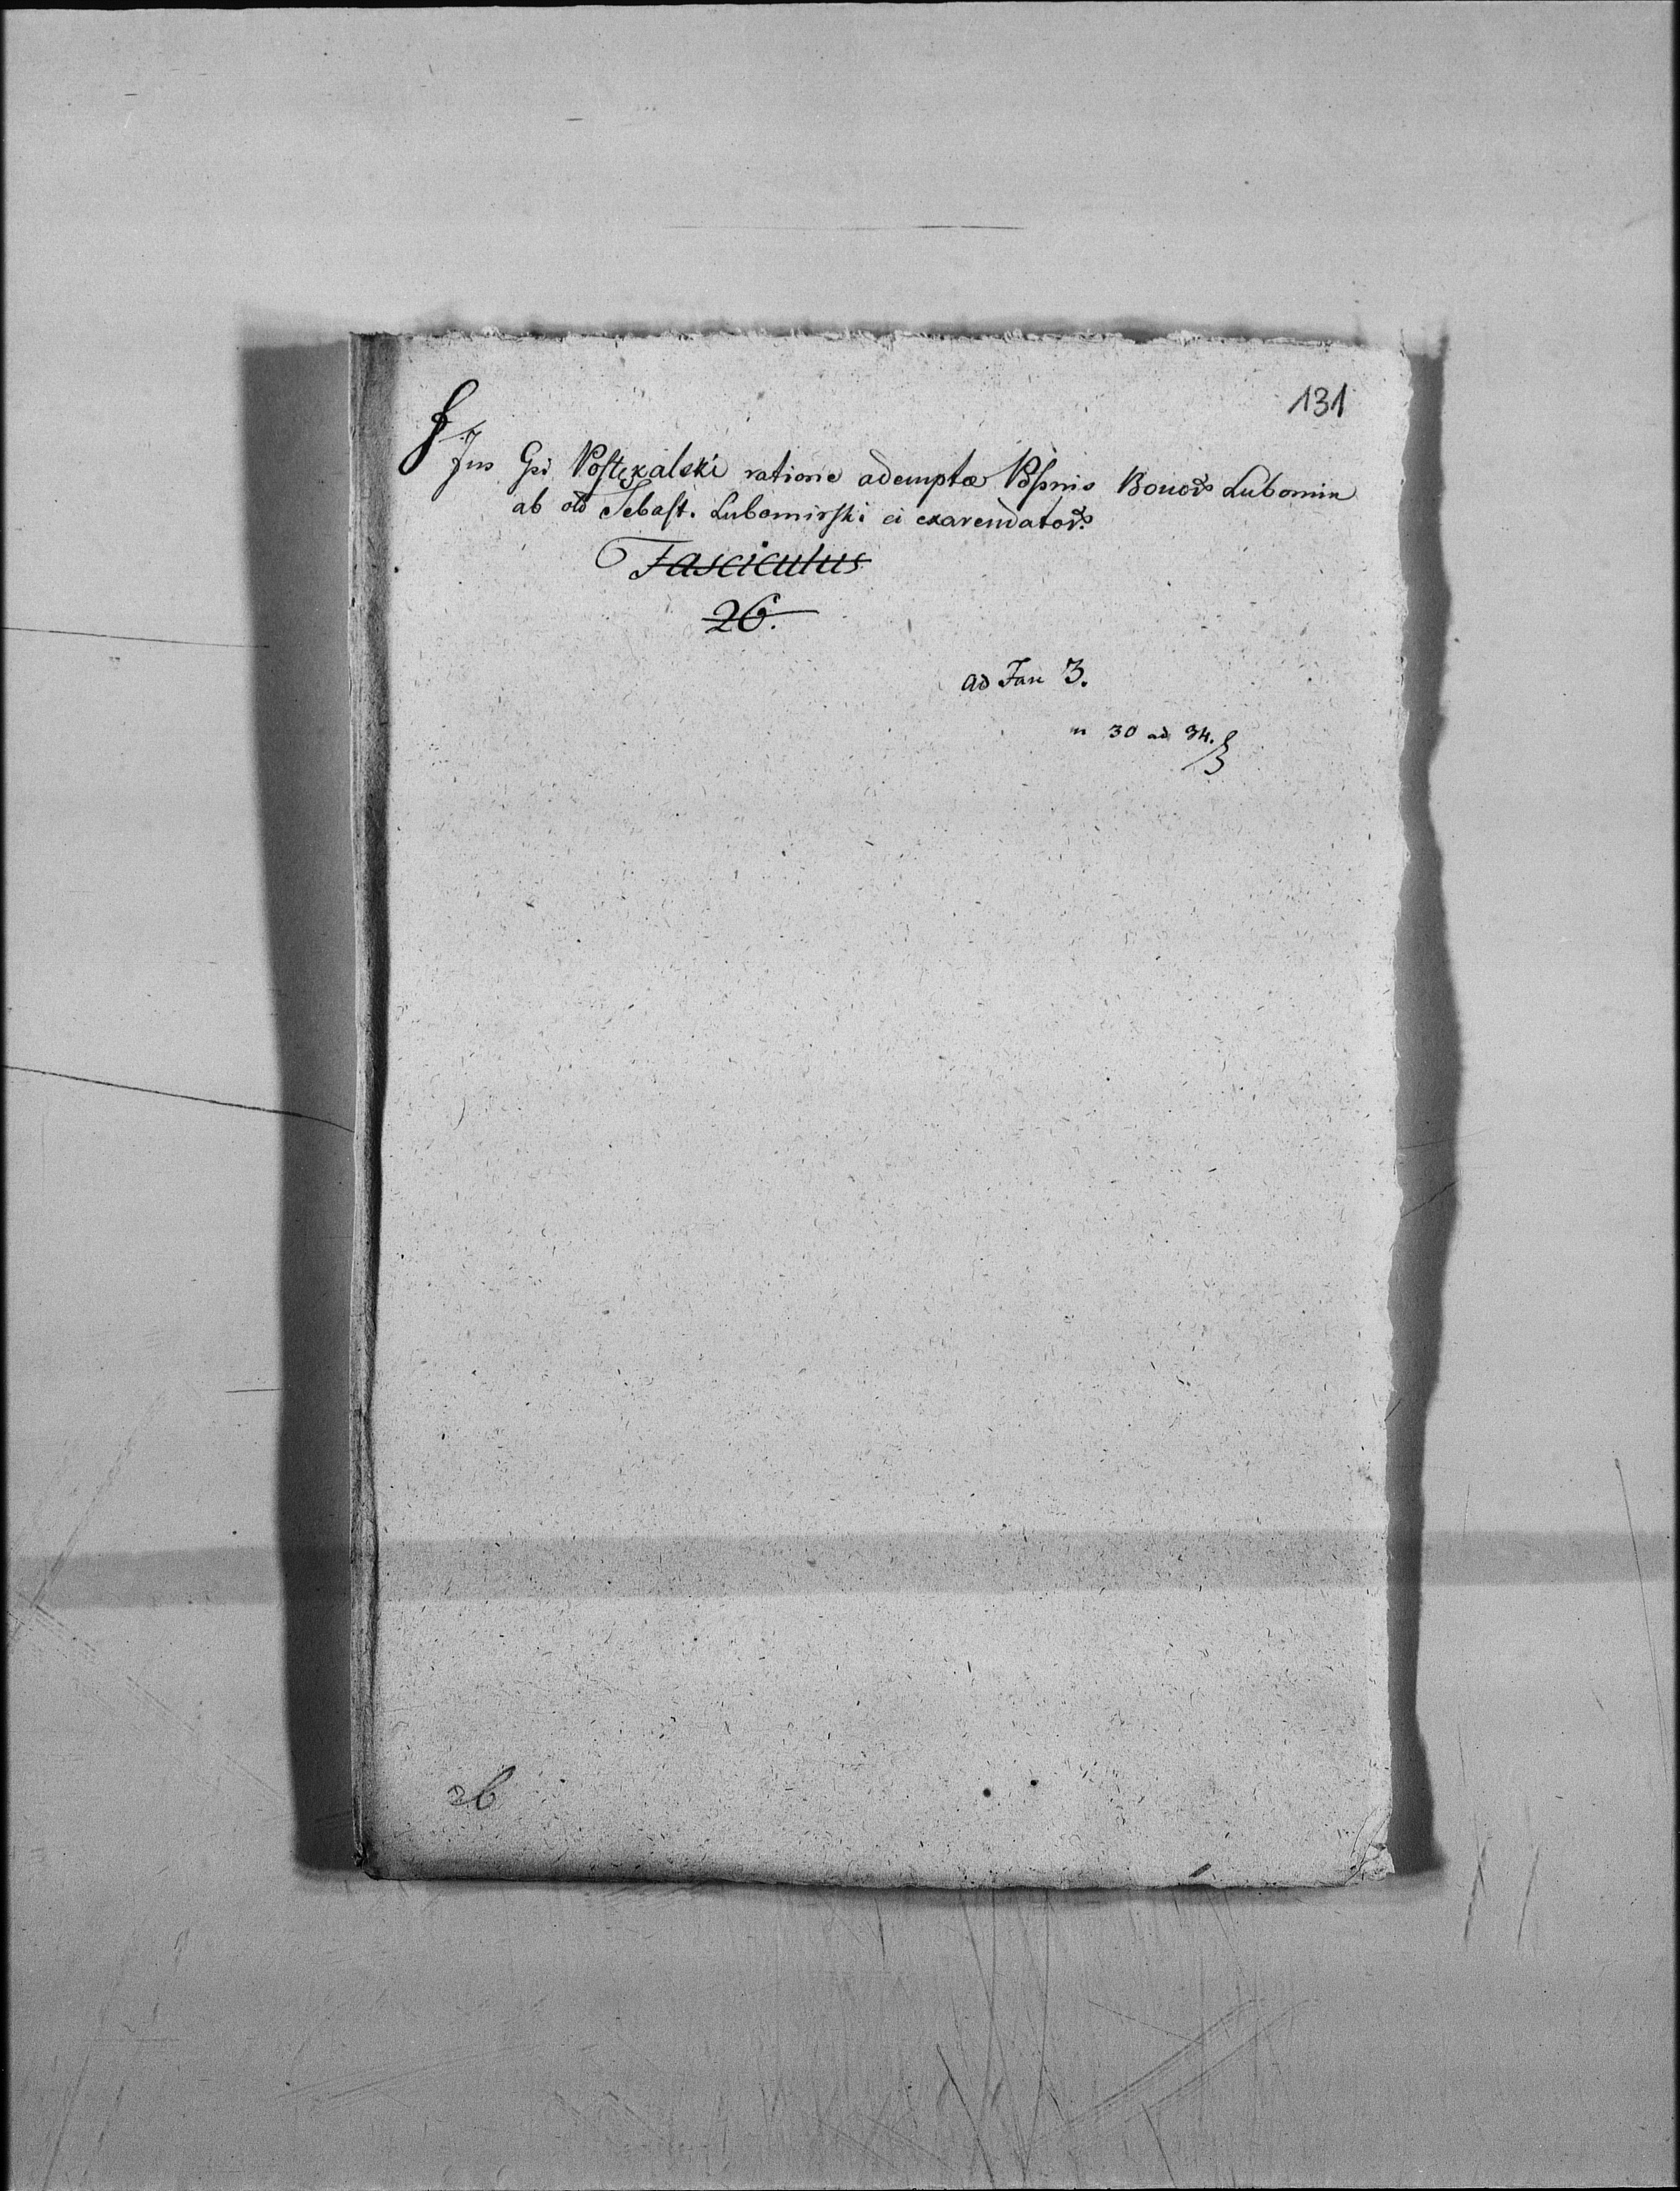 131
Jus Gsi Postęzalski ratione ademptæ Possnis Bonor Lubomin
ab old Sebast. Lubomirski ei exarendator
Fasciculus
26.
ad Fasc 3.
n 30 ad 34.
26